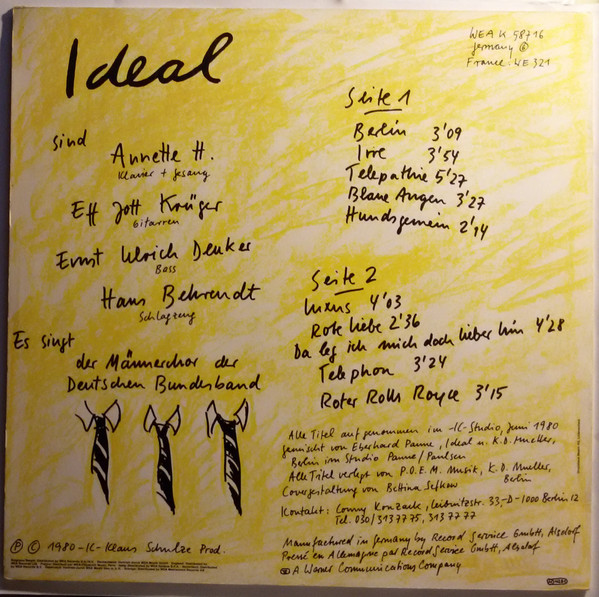 Ideal
sind
Annette H.
Klavier + Gesang
Eff Jott Krüger
Gitarren
Ernst Ulrich Deuker
Bass
Hans Behrendt
Schlagzeug
Es singt
der Männerchor der
Deutschen Bundesband
Ⓟ © 1980 -IC- Klaus Schulze Prod.
WEA K 58716
Germany Ⓖ
France: WE 321
Seite 1
Berlin 3'09
Irre 3'54
Telepathie 5'27
Blaue Augen 3'27
Hundsgemein 2'14
Seite 2
Luxus 4'03
Rote Liebe 2'36
Da leg ich mich doch lieber hin 4'28
Telephon 3'24
Roter Rolls Royce 3'15
Alle Titel aufgenommen im -IC-Studio, Juni 1980
gemischt von Eberhard Panne, Ideal u. K.D. Mueller,
Berlin im Studio Panne/Paulsen
Alle Titel verlegt von P.O.E.M. Musik, K.D. Mueller,
Berlin
Covergestaltung von Bettina Sefkow
Kontakt: Conny Konzack, Leibnitzstr. 33, D-1000 Berlin 12
Tel. 030/3137775, 3137777
Manufactured in Germany by Record Service GmbH, Alsdorf
Pressé en Allemagne par Record Service GmbH, Alsdorf
A Warner Communications Company